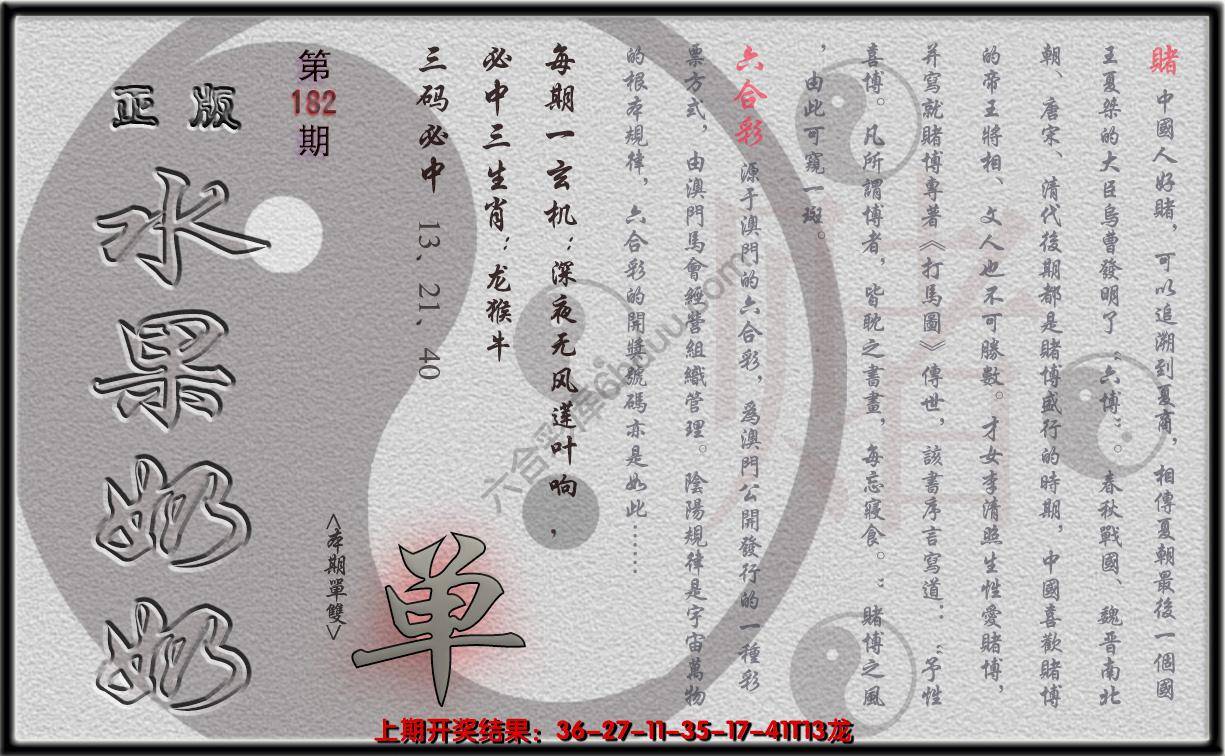 賭 中國人好賭，可以追溯到夏商，相傳夏朝最後一個國
王夏桀的大臣烏曹發明了“六博”。春秋戰國、魏晋南北
朝、唐宋、清代後期都是賭博盛行的時期，中國喜歡賭博
的帝王將相、文人也不可勝數。才女李清照生性愛賭博，
并寫就賭博專著《打馬圖》傳世，該書序言寫道：“予性
喜博。凡所謂博者，皆耽之晝畫，每忘寢食。”賭博之風
，由此可窺一斑。
六合彩 源于澳門的六合彩，爲澳門公開發行的一種彩
票方式，由澳門馬會經營組織管理。陰陽規律是宇宙萬物
的根本規律，六合彩的開獎號碼亦是如此……
每期一玄机：深夜无风莲叶响，
必中三生肖：龙猴牛
三码必中 13、21、40
第182期
正版
水果奶奶
<本期單雙>
单
上期开奖结果：36-27-11-35-17-41T13龙
六合彩库6huuu.com